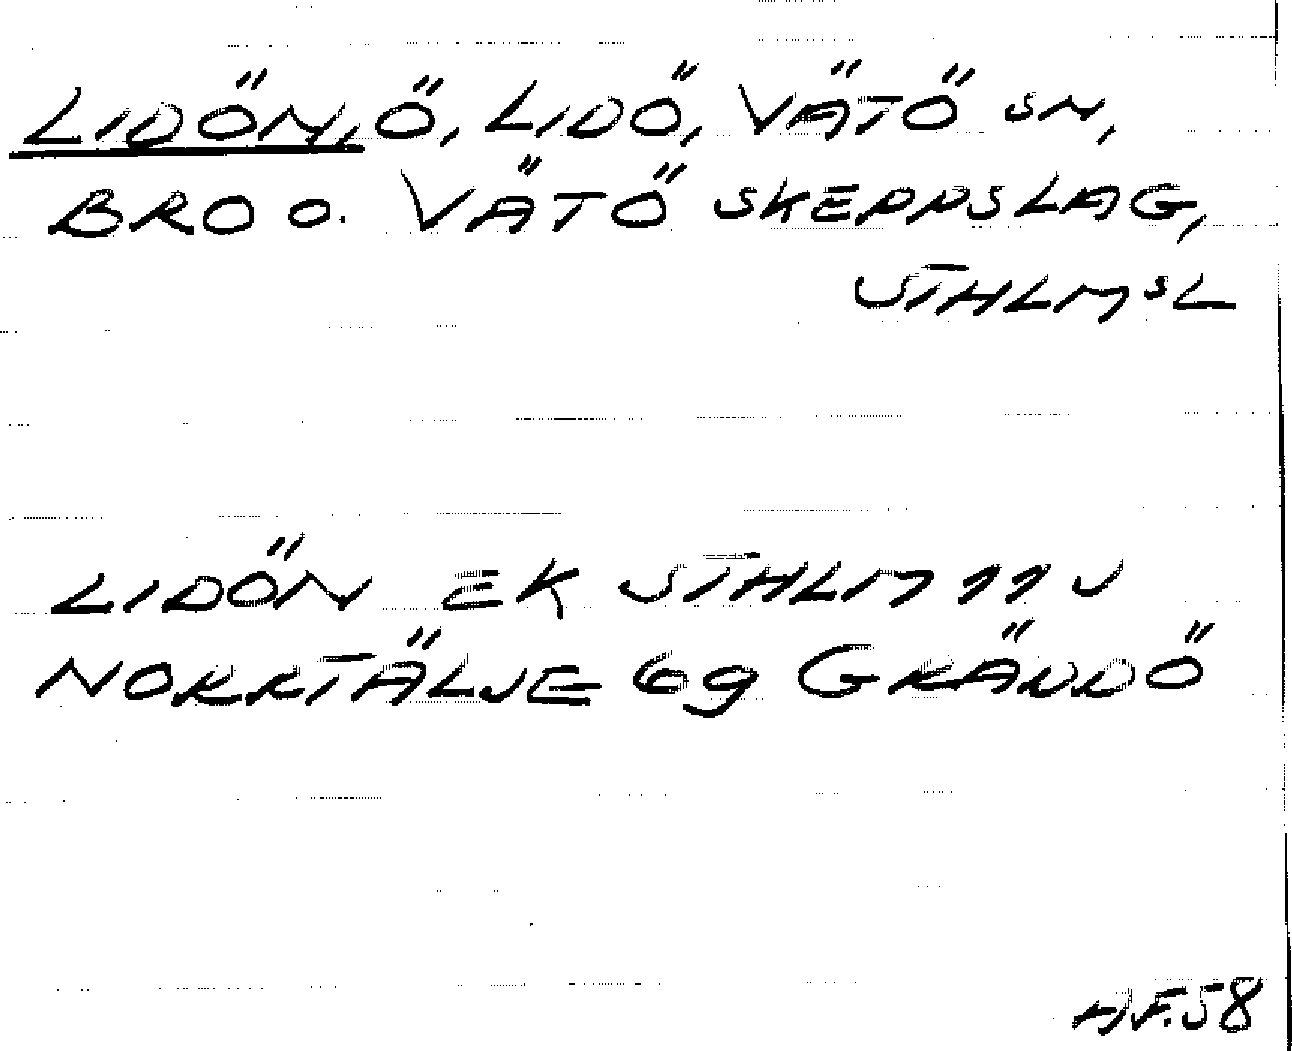 LIDÖN, Ö, LIDÖ, VÄTÖ SN,
BRO O. VÄTÖ SKEPPSLAG,
STHLMSL
LIDÖN EK STHLM 11 J
NORRTÄLJE 69 GRÄDDÖ
AF.58